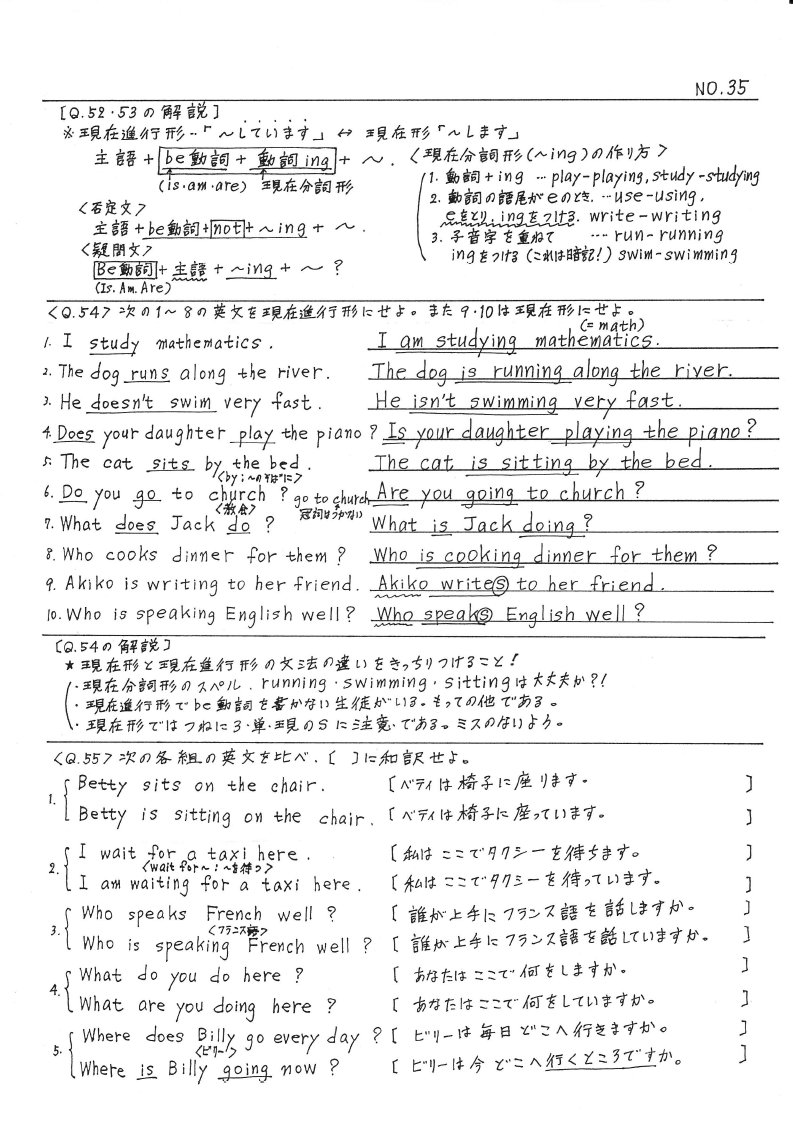 NO.35
[Q.52・53の解説]
※現在進行形…「～しています」 ↔ 現在形「～します」
主語 + be動詞 + 動詞ing + ～.
(is・am・are) 現在分詞形
<否定文>
主語+be動詞+not+～ing+～.
<疑問文>
Be動詞+主語+～ing+～?
(Is.Am.Are)
<現在分詞形(～ing)の作り方>
1. 動詞+ing …play-playing, study-studying
2. 動詞の語尾がeのとき. …use-using,
eをとり, ingをつける. write-writing
3. 子音字を重ねて …run-running
ingをつける(これは暗記!) swim-swimming
<Q.54> 次の1～8の英文を現在進行形にせよ。また9・10は現在形にせよ。
(=math)
1. I study mathematics. I am studying mathematics.
2. The dog runs along the river. The dog is running along the river.
3. He doesn't swim very fast. He isn't swimming very fast.
4. Does your daughter play the piano? Is your daughter playing the piano?
5. The cat sits by the bed. The cat is sitting by the bed.
<by:～のそばに>
6. Do you go to church? go to church Are you going to church?
<教会> 冠詞はつかない
7. What does Jack do? What is Jack doing?
8. Who cooks dinner for them? Who is cooking dinner for them?
9. Akiko is writing to her friend. Akiko writes to her friend.
10. Who is speaking English well? Who speaks English well?
[Q.54の解説]
★現在形と現在進行形の文法の違いをきっちりつけること!
・現在分詞形のスペル. running・swimming・sittingは大丈夫か?!
・現在進行形でbe動詞を書かない生徒がいる。もっての他である。
・現在形ではつねに3・単・現のSに注意である。ミスのないよう。
<Q.55> 次の各組の英文を比べ.[ ]に和訳せよ。
1. Betty sits on the chair. [ベティは椅子に座ります。]
Betty is sitting on the chair. [ベティは椅子に座っています。]
2. I wait for a taxi here. [私はここでタクシーを待ちます。]
<wait for～:～を待つ>
I am waiting for a taxi here. [私はここでタクシーを待っています。]
3. Who speaks French well? [誰が上手にフランス語を話しますか。]
<フランス語>
Who is speaking French well? [誰が上手にフランス語を話していますか。]
4. What do you do here? [あなたはここで何をしますか。]
What are you doing here? [あなたはここで何をしていますか。]
5. Where does Billy go every day? [ビリーは毎日どこへ行きますか。]
<ビリー>
Where is Billy going now? [ビリーは今どこへ行くところですか。]